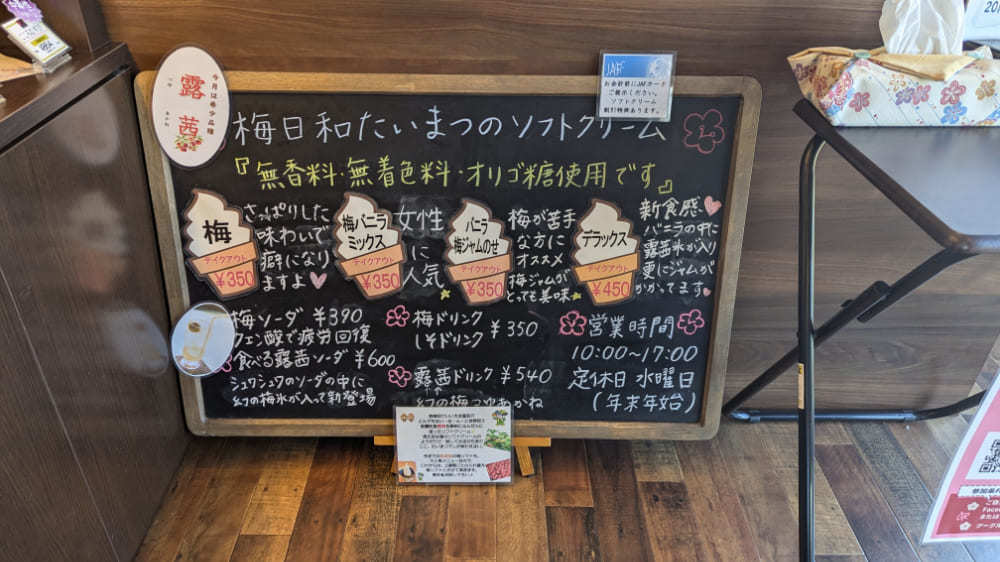 今月は希少品種
露茜
つゆ
あかね
JAF
お会計前にJAFカード
ご提示ください。
ソフトクリーム
割引特典あります。
梅日和たいまつのソフトクリーム
『無香料・無着色料・オリゴ糖使用です』
梅
テイクアウト
¥350
さっぱりした
味わいで
癖になり
ますよ
梅バニラ
ミックス
テイクアウト
¥350
女性
に
人気
バニラ
梅ジャムのせ
テイクアウト
¥350
梅が苦手
な方に
オススメ
梅ジャムが
とっても美味
デラックス
テイクアウト
¥450
新食感
バニラの中に
露茜氷が入り
更にジャムが
かかってます
梅ソーダ ¥390
クエン酸で疲労回復
食べる露茜ソーダ ¥600
シュワシュワのソーダの中に
幻の梅氷が入って新登場
梅ドリンク
しそドリンク
¥350
露茜ドリンク ¥540
幻の梅つゆあかね
営業時間
10:00〜17:00
定休日 水曜日
(年末年始)